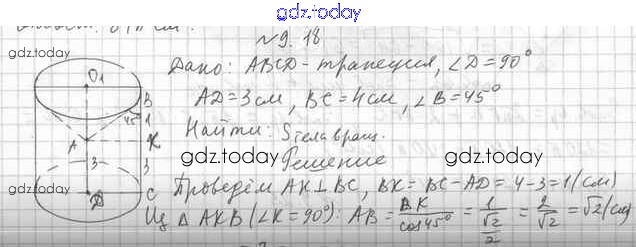 gdz.today
№9.18
Дано: ABCD - трапеция, ∠D = 90°
AD = 3 см, BC = 4 см, ∠B = 45°
Найти: Sтела вращ.
gdz.today gdz.today
Решение
gdz.today gdz.today
Проведём AK⊥BC, BK = BC - AD = 4 - 3 = 1 (см)
Из Δ AKB (∠K = 90°): AB = BK/cos45° = 1/(√2/2) = 2/√2 = √2 (см)
O₁
B
45°
1
A
K
3
3
D
C